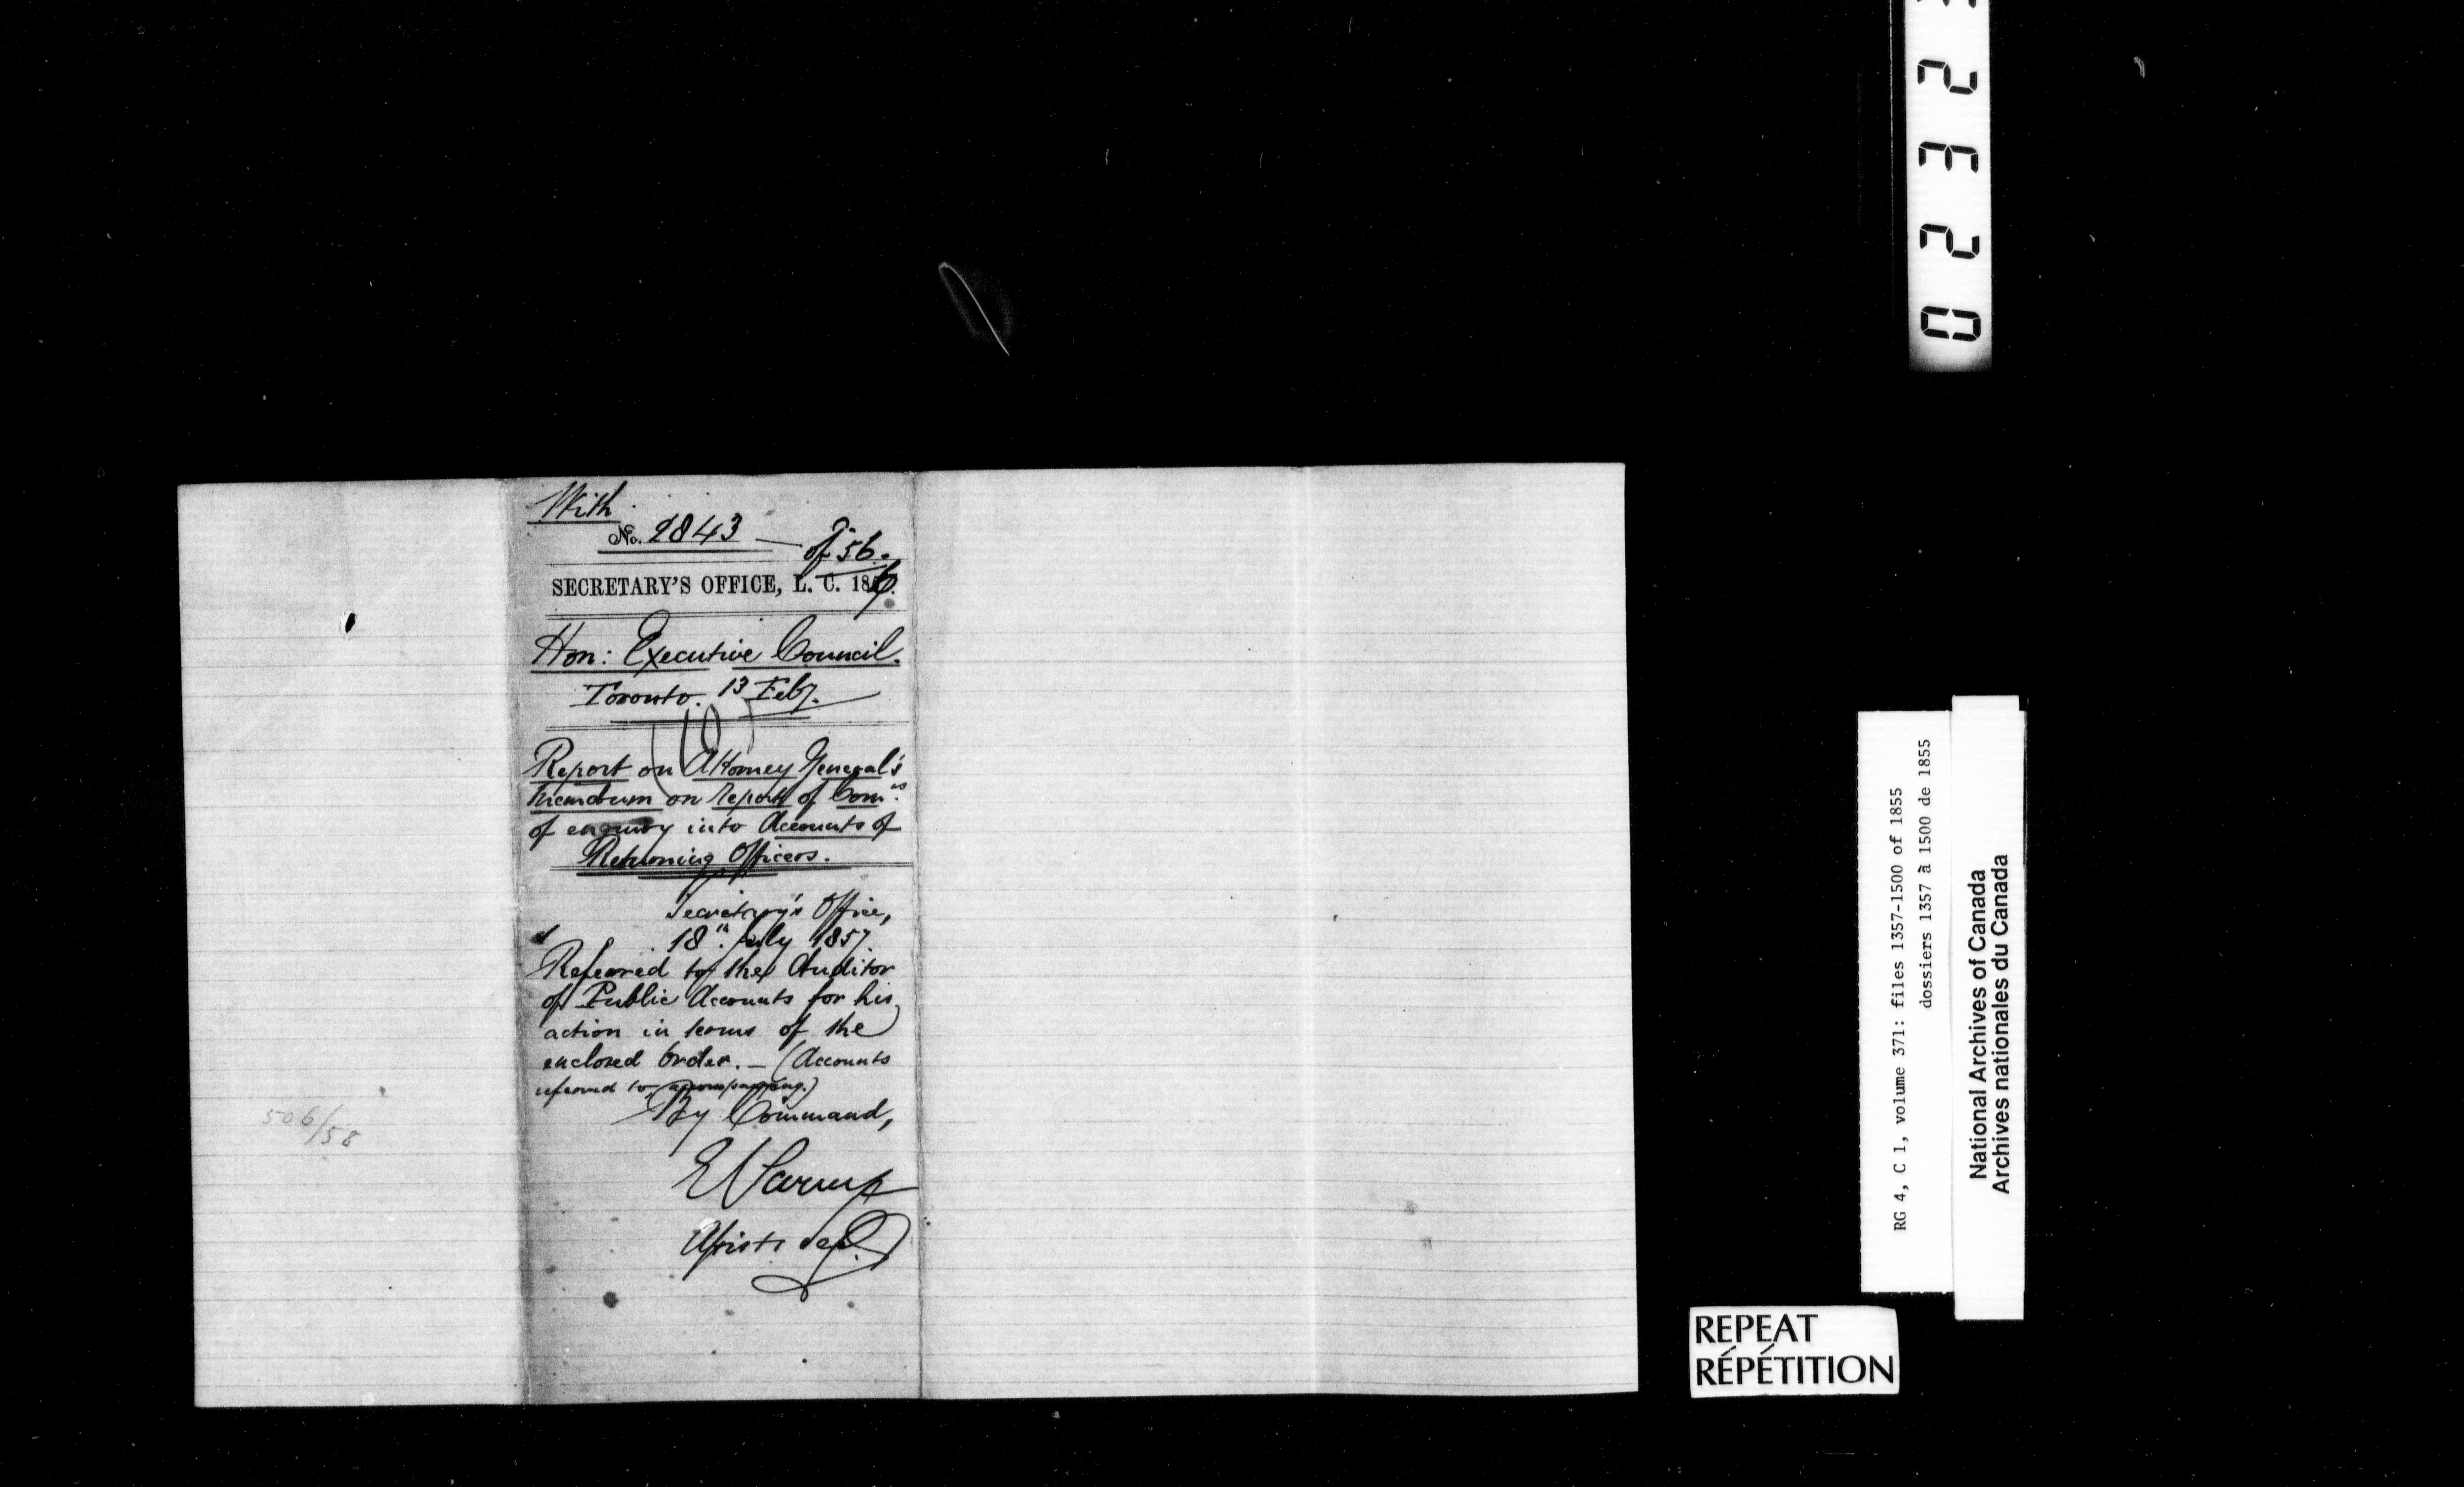 With
No. 2843 — of 56.
SECRETARY'S OFFICE, L. C. 1856.
Hon: Executive Council.
Toronto. 13 Feby.
Report on Attorney General's
Memdum on Report of Com.rs
of enquiry into Accounts of
Returning Officers.
Secretary's Office,
18th July 1857.
Referred to the Auditor
of Public Accounts for his
action in terms of the
enclosed Order. — (Accounts
referred to, accompanying.)
By Command,
E Parent
Assist Sec.
506/58
0232
RG 4, C 1, volume 371: files 1357-1500 of 1855
dossiers 1357 à 1500 de 1855
National Archives of Canada
Archives nationales du Canada
REPEAT
RÉPÉTITION